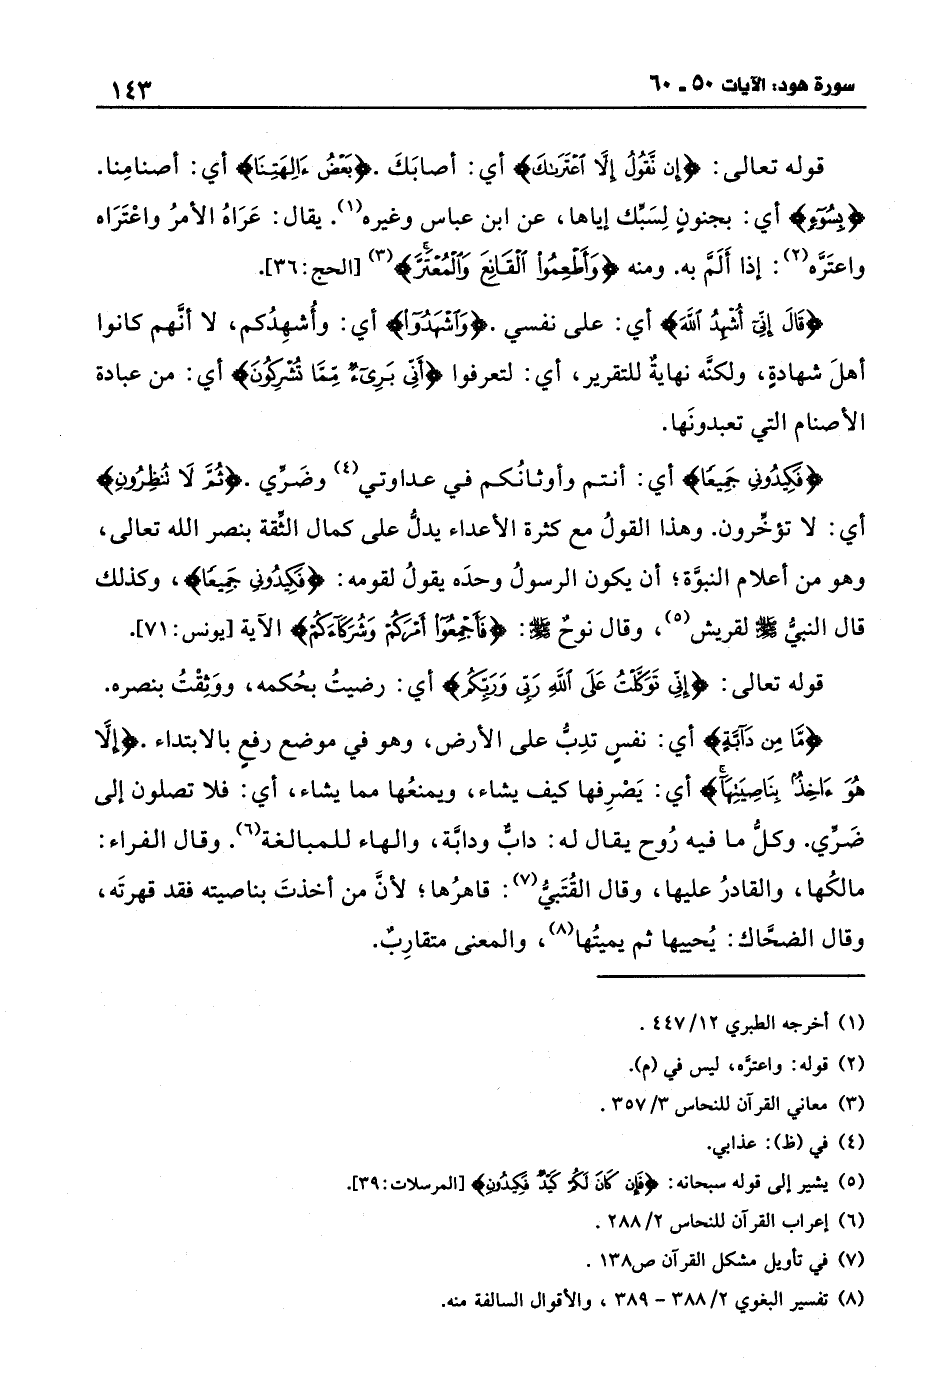 سورة هود: الآيات ٥٠ ـ ٦٠
١٤٣
قوله تعالى: ﴿إِن نَّقُولُ إِلَّا ٱعْتَرَىٰكَ﴾ أي: أصابَكَ. ﴿بَعْضُ ءَالِهَتِنَا﴾ أي: أصنامِنا.
﴿بِسُوٓءٍ﴾ أي: بجنونٍ لِسَبِّك إياها، عن ابن عباس وغيره(١). يقال: عَرَاهُ الأمرُ واعْتَرَاه
واعتَرَّه(٢): إذا أَلَمَّ به. ومنه ﴿وَأَطْعِمُوا۟ ٱلْقَانِعَ وَٱلْمُعْتَرَّ﴾(٣) [الحج:٣٦].
﴿قَالَ إِنِّىٓ أُشْهِدُ ٱللَّهَ﴾ أي: على نفسي. ﴿وَٱشْهَدُوٓا۟﴾ أي: وأُشهِدُكم، لا أنَّهم كانوا
أهلَ شهادةٍ، ولكنَّه نهايةٌ للتقرير، أي: لتعرفوا ﴿أَنِّى بَرِىٓءٌ مِّمَّا تُشْرِكُونَ﴾ أي: من عبادة
الأصنام التي تعبدونَها.
﴿فَكِيدُونِى جَمِيعًا﴾ أي: أنتم وأوثانُكم في عداوتي(٤) وضَرِّي. ﴿ثُمَّ لَا تُنظِرُونِ﴾
أي: لا تؤخِّرون. وهذا القولُ مع كثرة الأعداء يدلُّ على كمال الثِّقة بنصر الله تعالى،
وهو من أعلام النبوَّة؛ أن يكون الرسولُ وحدَه يقولُ لقومه: ﴿فَكِيدُونِى جَمِيعًا﴾، وكذلك
قال النبيُّ ﷺ لقريش(٥)، وقال نوحٌ ﷺ: ﴿فَأَجْمِعُوٓا۟ أَمْرَكُمْ وَشُرَكَآءَكُمْ﴾ الآية [يونس:٧١].
قوله تعالى: ﴿إِنِّى تَوَكَّلْتُ عَلَى ٱللَّهِ رَبِّى وَرَبِّكُم﴾ أي: رضيتُ بحُكمه، ووَثِقْتُ بنصره.
﴿مَّا مِن دَآبَّةٍ﴾ أي: نفسٍ تدِبُّ على الأرض، وهو في موضع رفعٍ بالابتداء. ﴿إِلَّا
هُوَ ءَاخِذٌۢ بِنَاصِيَتِهَآ﴾ أي: يَصْرِفها كيف يشاء، ويمنعُها مما يشاء، أي: فلا تصلون إلى
ضَرِّي. وكلُّ ما فيه رُوح يقال له: دابٌّ ودابَّة، والهاء للمبالغة(٦). وقال الفراء:
مالكُها، والقادرُ عليها، وقال القُتَبيُّ(٧): قاهرُها؛ لأنَّ من أخذتَ بناصيته فقد قهرتَه،
وقال الضحَّاك: يُحييها ثم يميتُها(٨)، والمعنى متقاربٌ.
(١) أخرجه الطبري ١٢/ ٤٤٧ .
(٢) قوله: واعترَّه، ليس في (م).
(٣) معاني القرآن للنحاس ٣/ ٣٥٧ .
(٤) في (ظ): عذابي.
(٥) يشير إلى قوله سبحانه: ﴿فَإِن كَانَ لَكُمْ كَيْدٌ فَكِيدُونِ﴾ [المرسلات:٣٩].
(٦) إعراب القرآن للنحاس ٢/ ٢٨٨ .
(٧) في تأويل مشكل القرآن ص١٣٨ .
(٨) تفسير البغوي ٢/ ٣٨٨ – ٣٨٩ ، والأقوال السالفة منه.